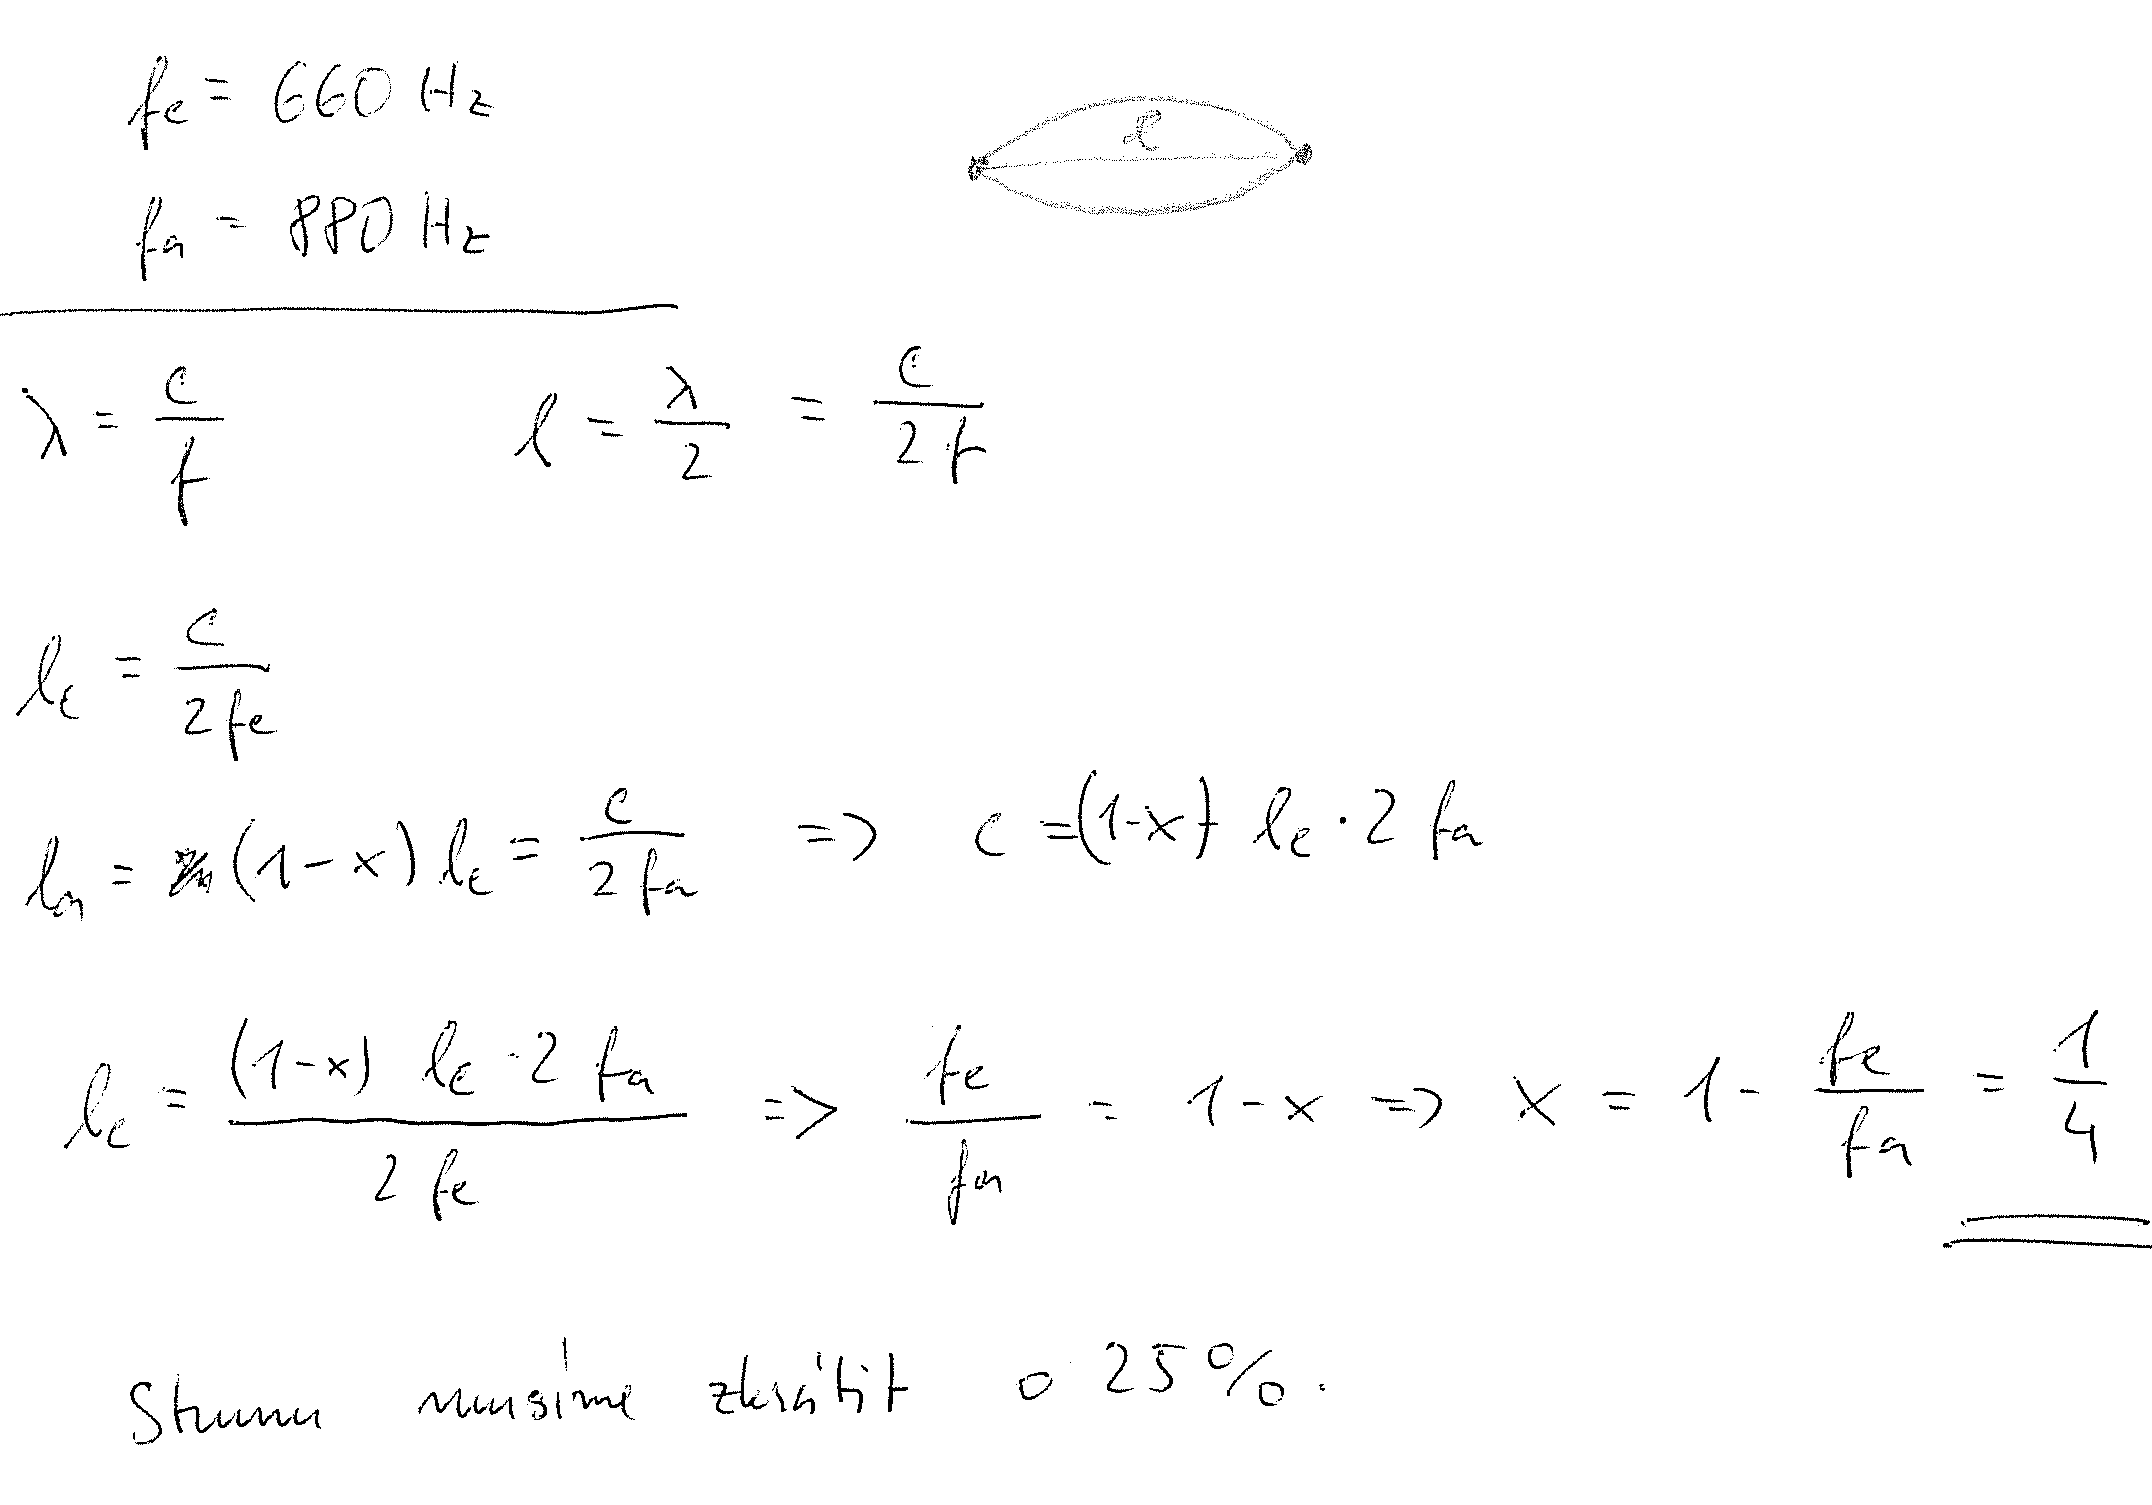 fe = 660 Hz
l
fa = 880 Hz
λ = c/f l = λ/2 = c/2f
le = c/2fe
la = (1-x) le = c/2fa => c = (1-x) le · 2 fa
le = (1-x) le · 2 fa / 2 fe => fe/fa = 1-x => x = 1 - fe/fa = 1/4
Strunu musíme zkrátit o 25%.